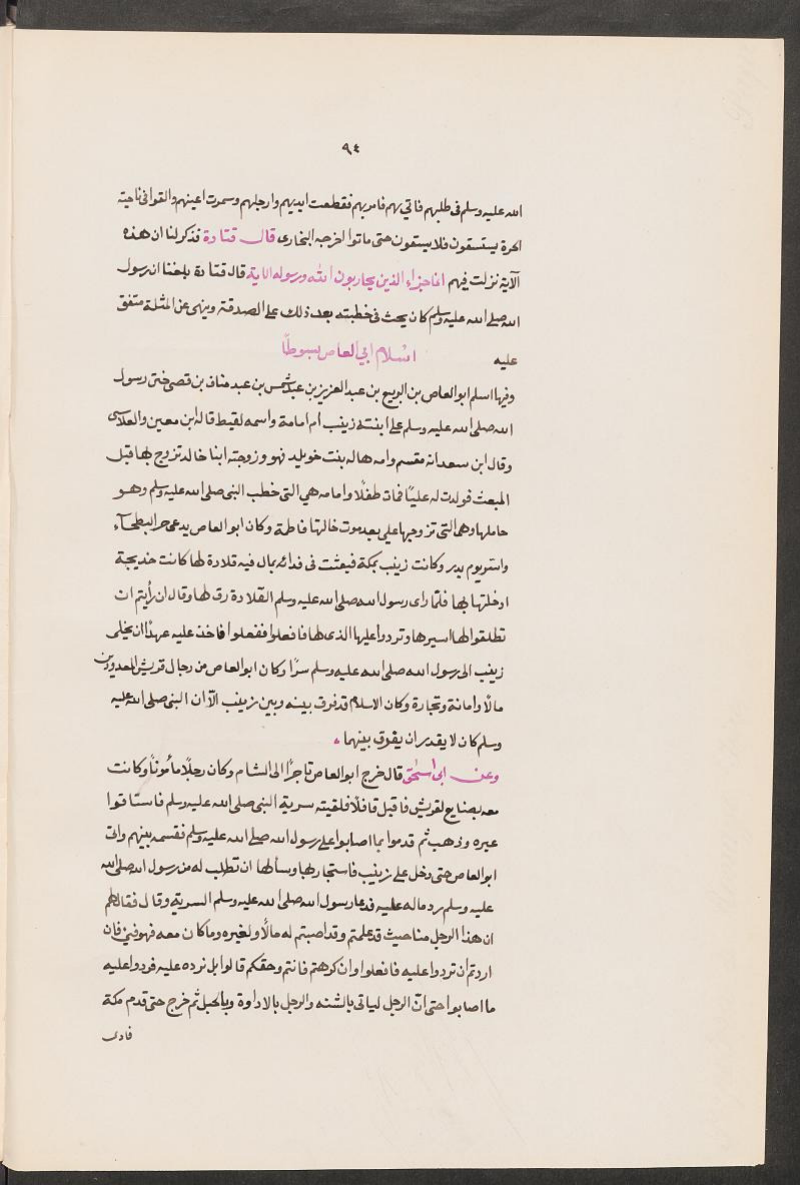 ٩٤
الله عليه وسلم فى طلبهم فاتي بهم فامر بهم فقطعت ايديهم وارجلهم وسمرت اعينهم والقوا فى ناحية
الحرة يستسقون فلا يسقون حتى ماتوا اخرجه البخارى قال قتادة فذكر لنا ان هذه
الآية نزلت فيهم انما جزاء الذين يحاربون الله ورسوله الاية قال قتادة بلغنا ان رسول
الله صلى الله عليه وسلم كان يحث فى خطبته بعد ذلك على الصدقة وينهى عن المثلة متفق
عليه
اسلام ابي العاص مبسوطًا
وفيها اسلم ابو العاص بن الربيع بن عبد العزيز بن عبد شمس بن عبد مناف بن قصى ختن رسول
الله صلى الله عليه وسلم على ابنته زينب ام امامة واسمه لقيط قاله ابن معين والفلاس
وقال ابن سعد انه مقسم وامه هاله بنت خويلد فهو وزوجته ابنا خاله تزوج بها قبل
المبعث فولدت له عليًا فمات طفلًا وامامه هي التى خطب النبى صلى الله عليه وسلم وهو
حاملها وهى التى تزوجها علي بعد موت خالتها فاطمة وكان ابو العاص يدعى جر البطحآء
واسر يوم بدر وكانت زينب بمكة فبعثت فى فدائه بمال فيه قلادة لها كانت خديجة
ادخلتها بها فلمّا راى رسول الله صلى الله عليه وسلم القلادة رق لها وقال ان رأيتم ان
تطلقوا لها اسيرها وتردوا عليها الذى لها فافعلوا ففعلوا فاخذ عليه عهدًا ان يخلى
زينب الى رسول الله صلى الله عليه وسلم سرًا وكان ابو العاص من رجال قريش المعدودين
مالًا وامانة وتجارة وكان الاسلام قد فرق بينه وبين زينب الا ان النبى صلى الله عليه
وسلم كان لا يقدر ان يفرق بينهما
وعن ابى اسحٰق قال خرج ابو العاص تاجرًا الى الشام وكان رجلًا مأمونًا وكانت
معه بضايع لقريش فاقبل قافلًا فلقيته سرية النبى صلى الله عليه وسلم فاستاقوا
عيره وذهب ثم قدموا بما اصابوا على رسول الله صلى الله عليه وسلم فقسمه بينهم واتى
ابو العاص حتى دخل على زينب فاستجار بها وسألها ان تطلب له من رسول الله صلى الله
عليه وسلم رد ماله عليه فدعا رسول الله صلى الله عليه وسلم السرية وقال فقال لهم
ان هذا الرجل منا حيث قد علمتم وقد اصبتم له مالًا ولغيره وما كان معه فهو فئ فان
اردتم ان تردوا عليه فافعلوا وان كرهتم فانتم وحقكم قالوا بل نرده عليه فردوا عليه
ما اصابوا حتى انّ الرجل لياتى بالشنه والرجل بالاداوة وبالحبل ثم خرج حتى قدم مكة
فادى